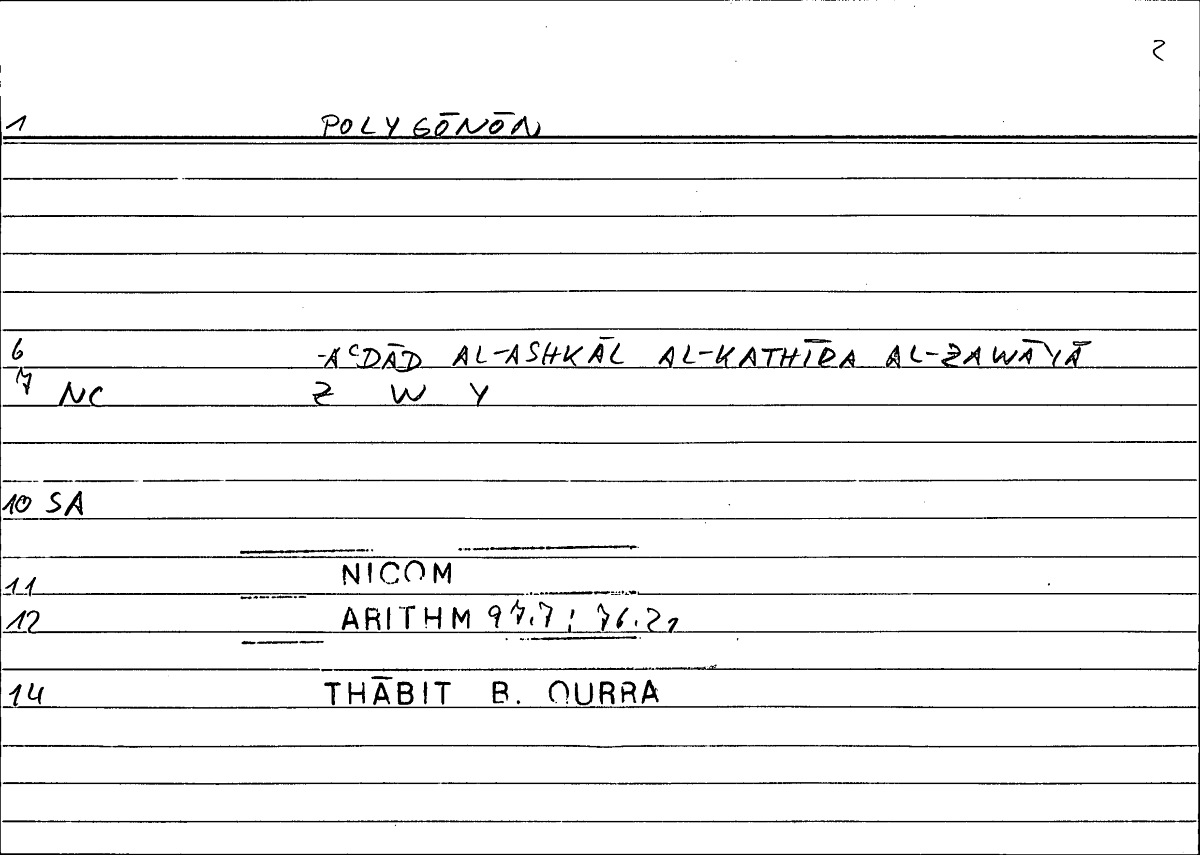 2
1 POLYGŌNŌN
6 -AᶜDĀD AL-ASHKĀL AL-KATHĪRA AL-ZAWĀYĀ
7 NC Z W Y
10 SA
11 NICOM
12 ARITHM 97.7 ; 76.21
14 THĀBIT B. QURRA